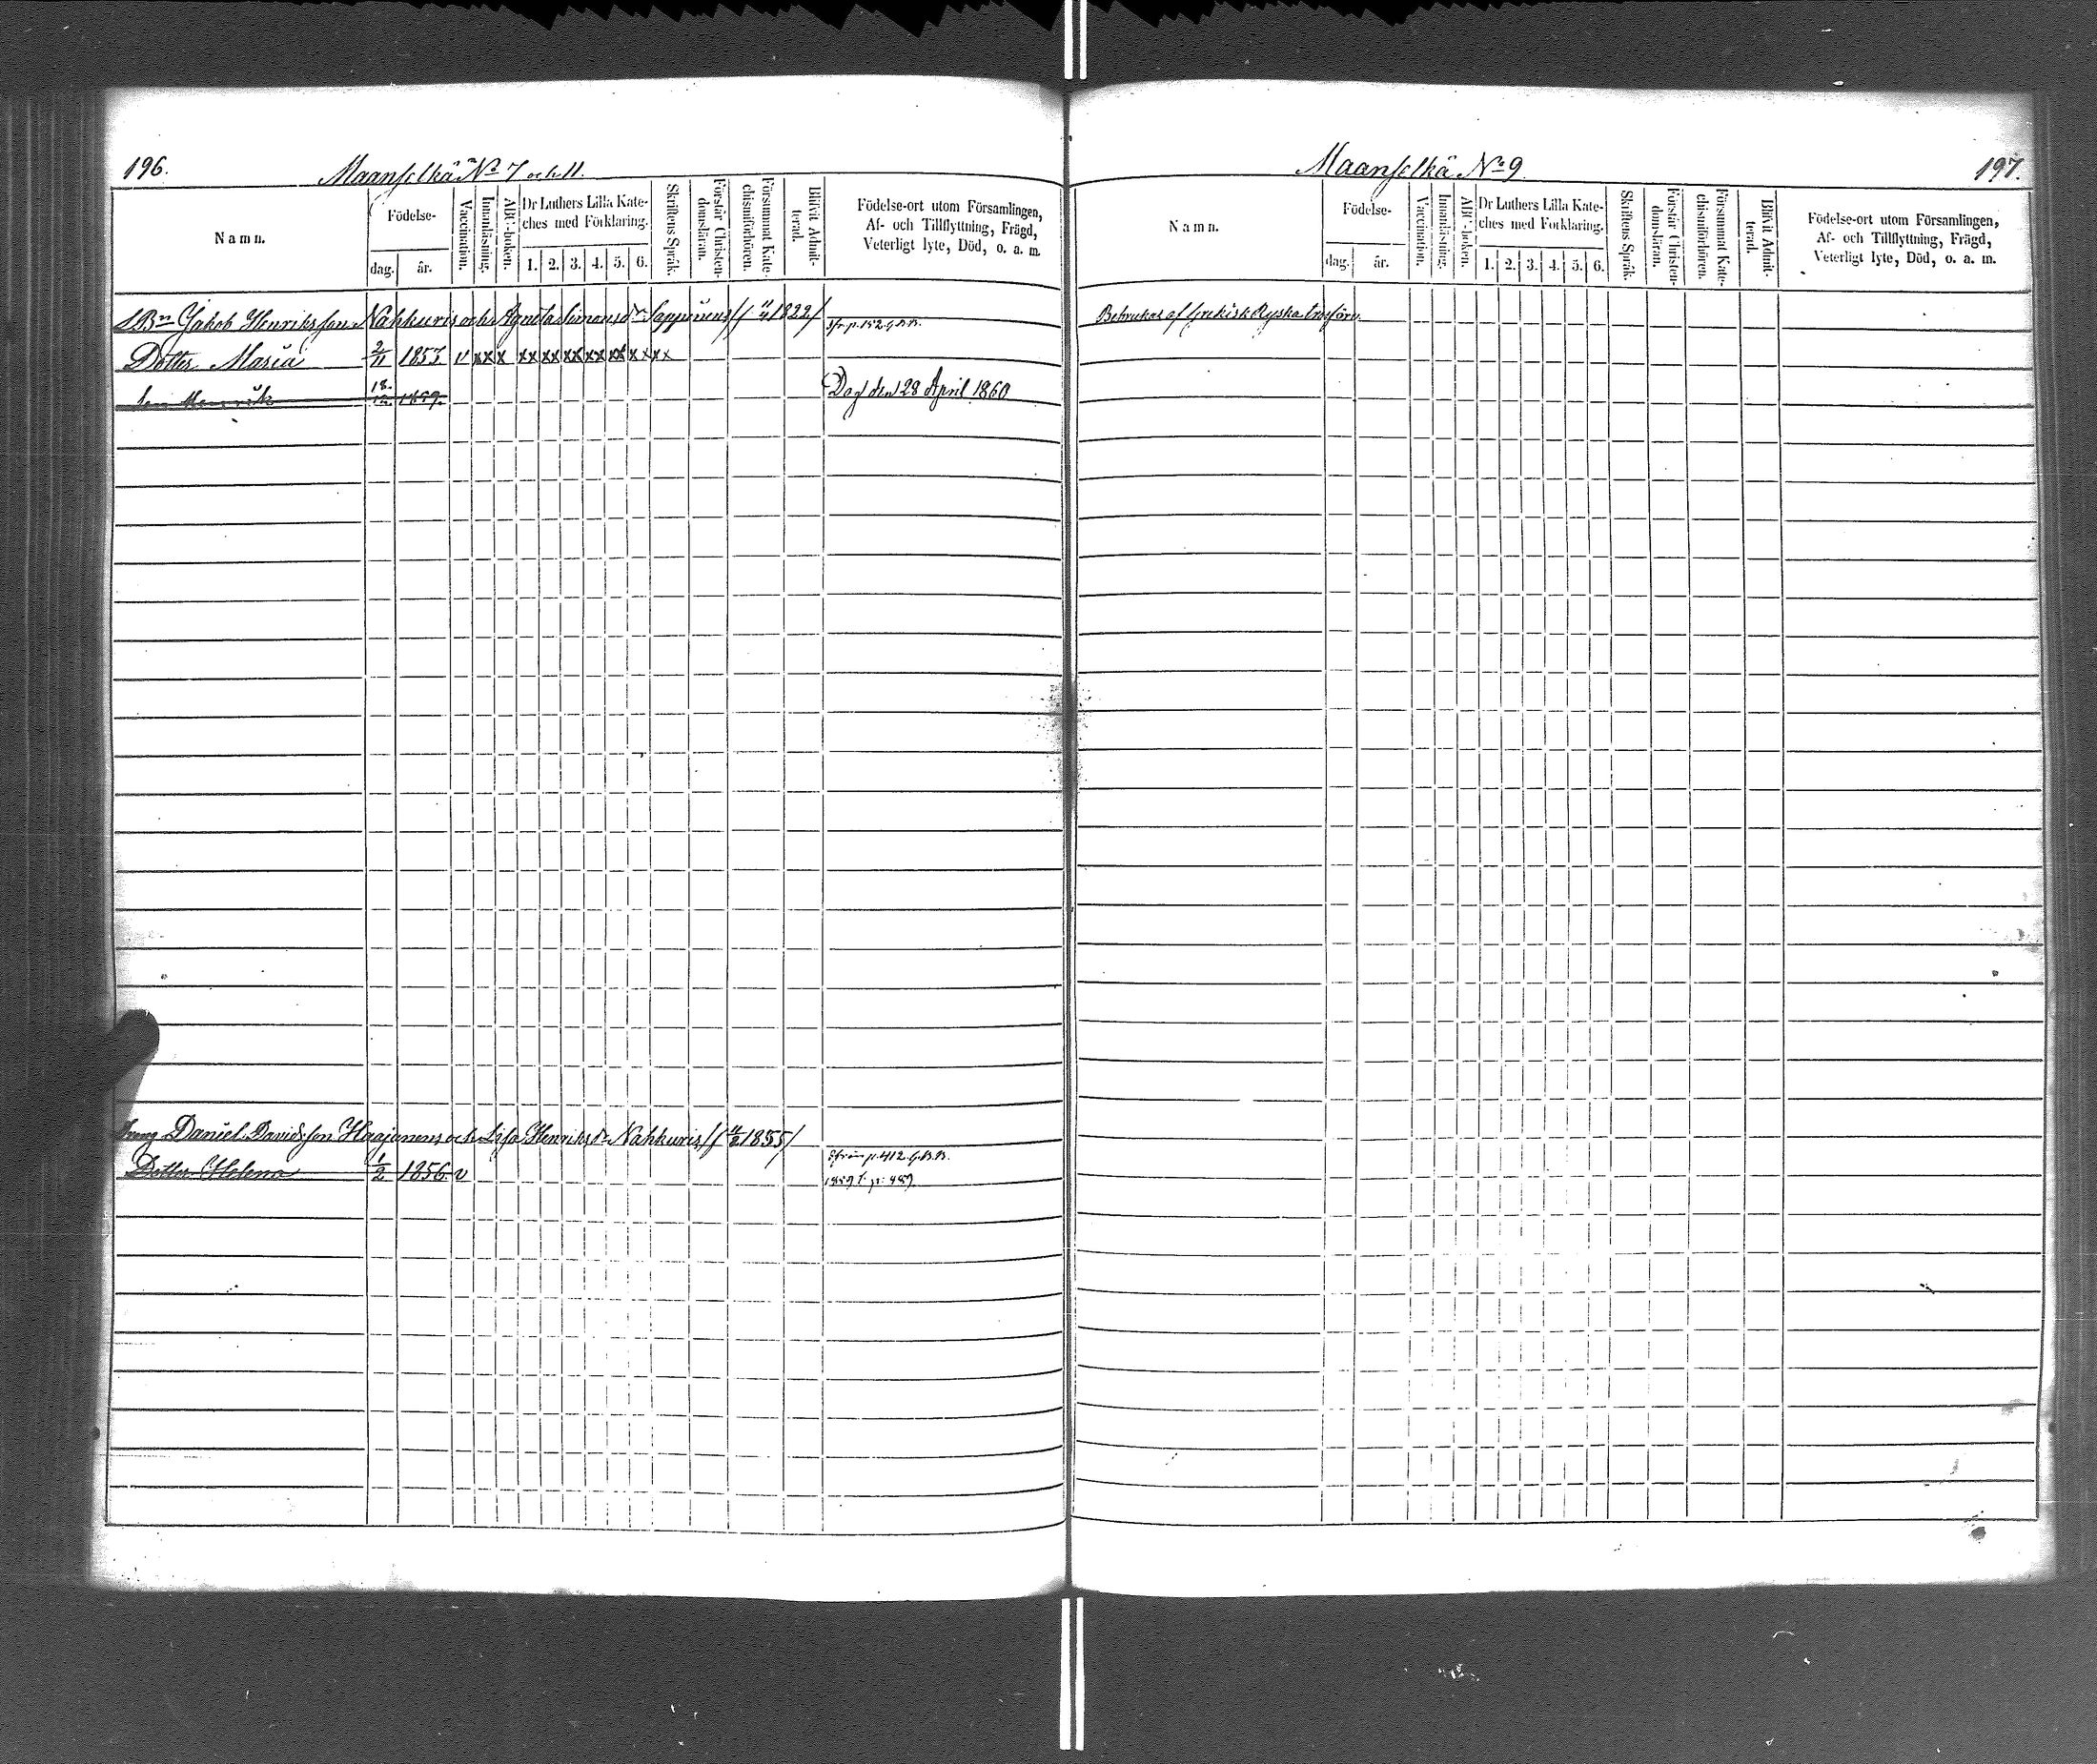 196.
Maanselkä No 7 och 11.
Namn.
Födelse-
dag.
år.
Vaccination.
Innanläsning.
ABC-boken.
Dr Luthers Lilla Kate-
ches med Förklaring.
1. 2. 3. 4. 5. 6.
Skriftens Språk.
Förstår Christen-
domsläran.
Försummat Kate-
chismiförhören.
Blifvit Admit-
terad.
Födelse-ort utom Församlingen,
Af- och Tillflyttning, Frägd,
Veterligt lyte, Död, o. a. m.
Jakob Henriksson Nahkuris och Agneta Simonsdr 1822
p. 152 G.B.
Dotter Maria 2/11 1857 v xx x xx xx xx xx xx x xxx
Son Henrik 18/12 1859.
Dog den 28 April 1860
Daniel Davidsson Haajanens och Lisa Henriksdr Nahkuris 1855
från p. 412 G.B.B.
Dotter Helena 1/2 1856. v
1859 t. p: 489.
Maanselkä No 9
197.
Namn.
Födelse-
dag.
år.
Vaccination.
Innanläsning.
ABC-boken.
Dr Luthers Lilla Kate-
ches med Förklaring.
1. 2. 3. 4. 5. 6.
Skriftens Språk.
Förstår Christen-
domsläran.
Försummat Kate-
chismiförhören.
Blifvit Admit-
terad.
Födelse-ort utom Församlingen,
Af- och Tillflyttning, Frägd,
Veterligt lyte, Död, o. a. m.
Bebrukas af Grekisk Ryska